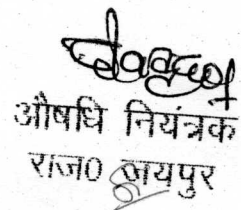 औषधि नियंत्रक
राज0 जयपुर